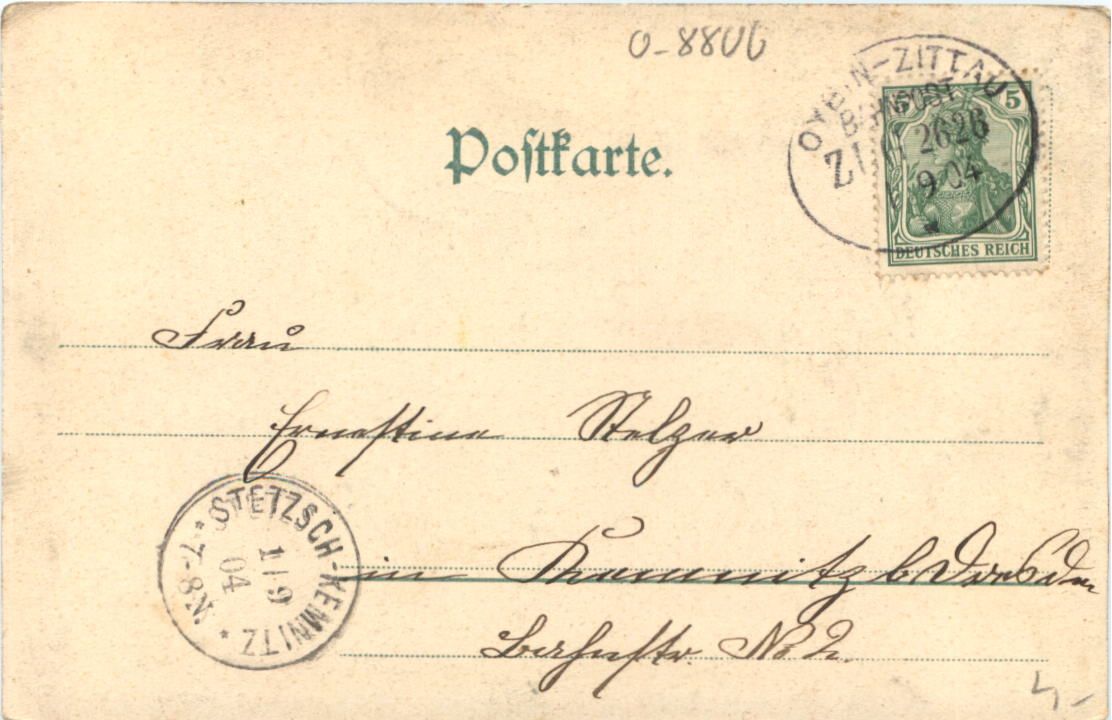 O-8806
Postkarte.
OYBIN-ZITTAU
BAHNPOST
2626
9 04
5 5
DEUTSCHES REICH
Frau
Ernestine Stelzer
in Kemnitz b Dresden
Bahnstr. No 2.
STETZSCH-KEMNITZ
11 9
04
* 7-8N. *
4,-